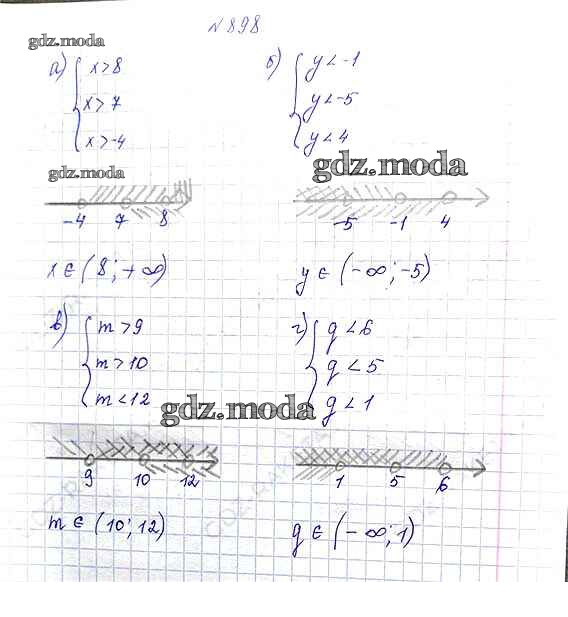 № 898
gdz.moda
а) { x > 8
x > 7
x > -4
б) { y < -1
y < -5
y < 4
gdz.moda
gdz.moda
-4 7 8
-5 -1 4
x ∈ (8; +∞)
y ∈ (-∞; -5)
в) { m > 9
m > 10
m < 12
г) { q < 6
q < 5
q < 1
gdz.moda
9 10 12
1 5 6
m ∈ (10; 12)
q ∈ (-∞; 1)